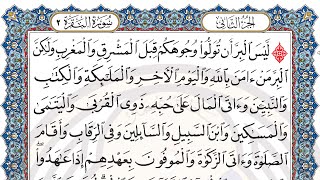 الجزء الثاني سورة البقرة ٢
لَيْسَ الْبِرَّ أَن تُوَلُّوا وُجُوهَكُمْ قِبَلَ الْمَشْرِقِ وَالْمَغْرِبِ وَلَٰكِنَّ
الْبِرَّ مَنْ ءَامَنَ بِاللَّهِ وَالْيَوْمِ الْآخِرِ وَالْمَلَٰٓئِكَةِ وَالْكِتَٰبِ
وَالنَّبِيِّـۧنَ وَءَاتَى الْمَالَ عَلَىٰ حُبِّهِۦ ذَوِى الْقُرْبَىٰ وَالْيَتَٰمَىٰ
وَالْمَسَٰكِينَ وَابْنَ السَّبِيلِ وَالسَّآئِلِينَ وَفِى الرِّقَابِ وَأَقَامَ
الصَّلَوٰةَ وَءَاتَى الزَّكَوٰةَ وَالْمُوفُونَ بِعَهْدِهِمْ إِذَا عَٰهَدُوا